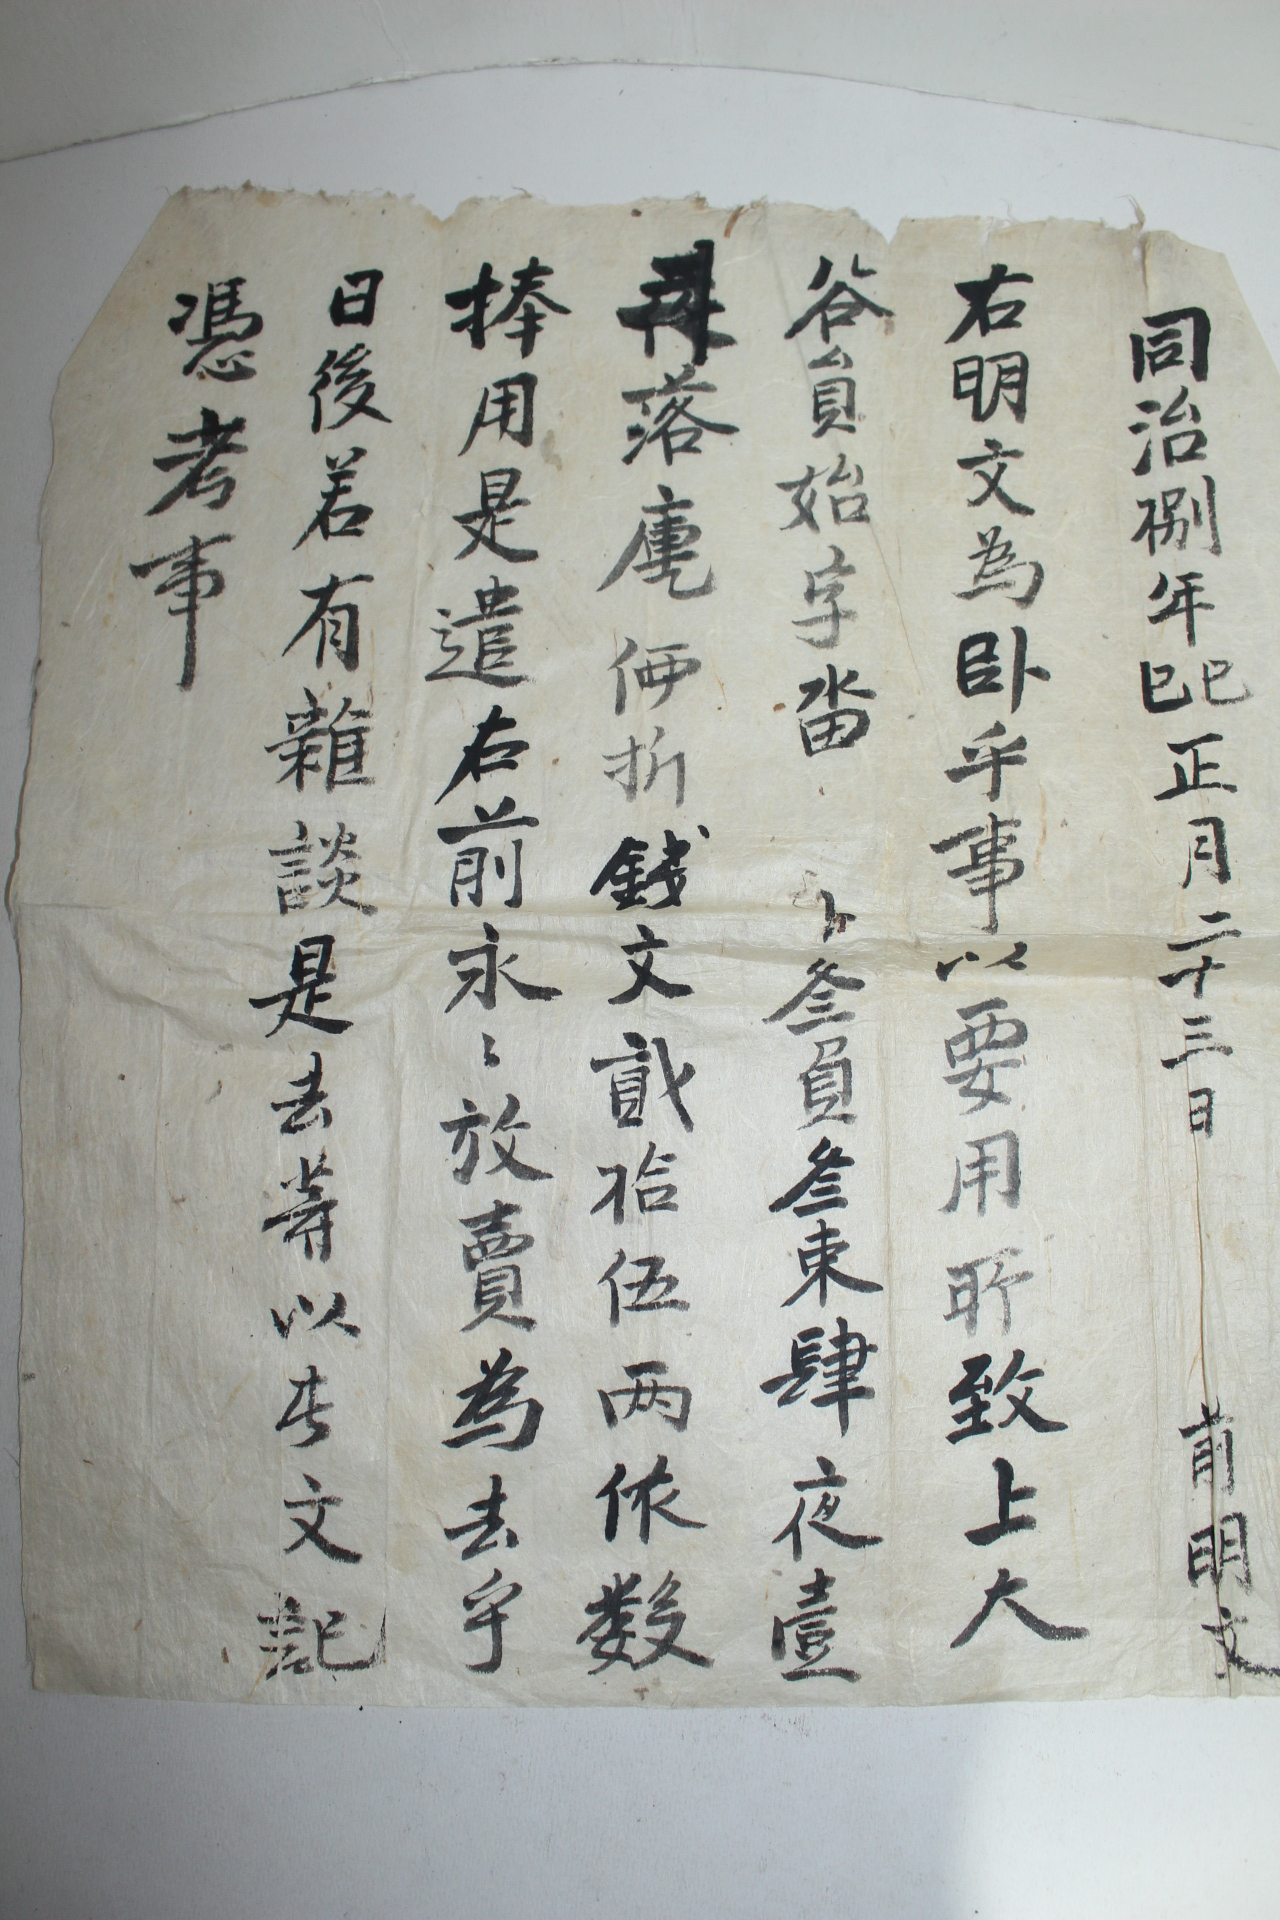 同治捌年己巳正月二十三日 前明文
右明文為臥乎事以要用所致上大
谷員始字畓 卜叄負叄束肆夜壹
落庫㐣折錢文貳拾伍兩依數
捧用是遣右前永〻放賣為去乎
日後若有雜談是去等以此文記
憑考事